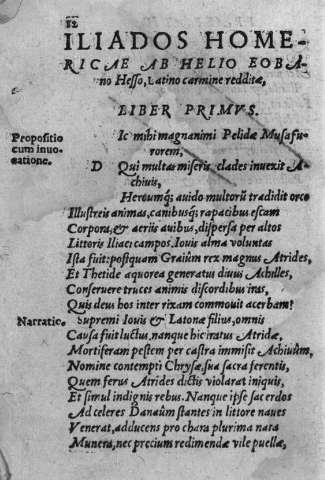 12
ILIADOS HOME-
RICAE AB HELIO EOBA-
no Hesso, Latino carmine redditæ,
LIBER PRIMVS.
Propositio
cum inuo-
catione.
Ic mihi magnanimi Pelidæ Musa fu-
rorem,
D Qui multas miseris clades inuexit A-
chiuis,
Heroumq; auido multorũ tradidit orco
Illustreis animas, canibusq; rapacibus escam
Corpora, & aeriis auibus, dispersa per altos
Littoris Iliaci campos. Iouis alma voluntas
Ista fuit: postquam Graiûm rex magnus Atrides,
Et Thetide aquorea generatus diuus Achilles,
Conseruere truces animis discordibus iras,
Quis deus hos inter rixam commouit acerbam?
Narratio.
Supremi Iouis & Latonæ filius, omnis
Causa fuit luctus, nanque hic iratus Atridæ,
Mortiferam pestem per castra immisit Achiuûm,
Nomine contempti Chrysæ, sua sacra ferentis,
Quem ferus Atrides dictis violarat iniquis,
Et simul indignis rebus. Nanque ipse sacerdos
Ad celeres Danaûm stantes in littore naues
Venerat, adducens pro chara plurima nata
Munera, nec precium redimendæ vile puellæ,